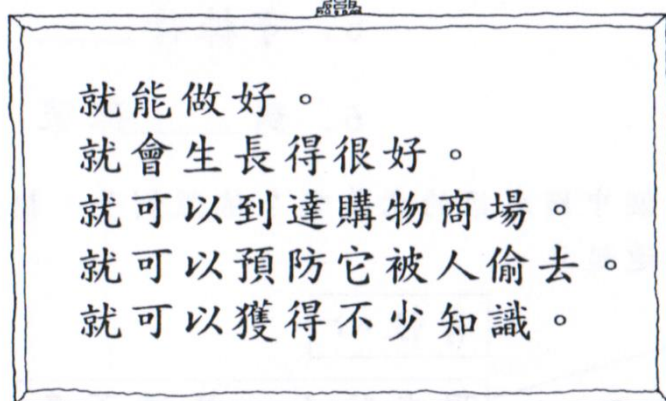 就能做好。
就會生長得很好。
就可以到達購物商場。
就可以預防它被人偷去。
就可以獲得不少知識。